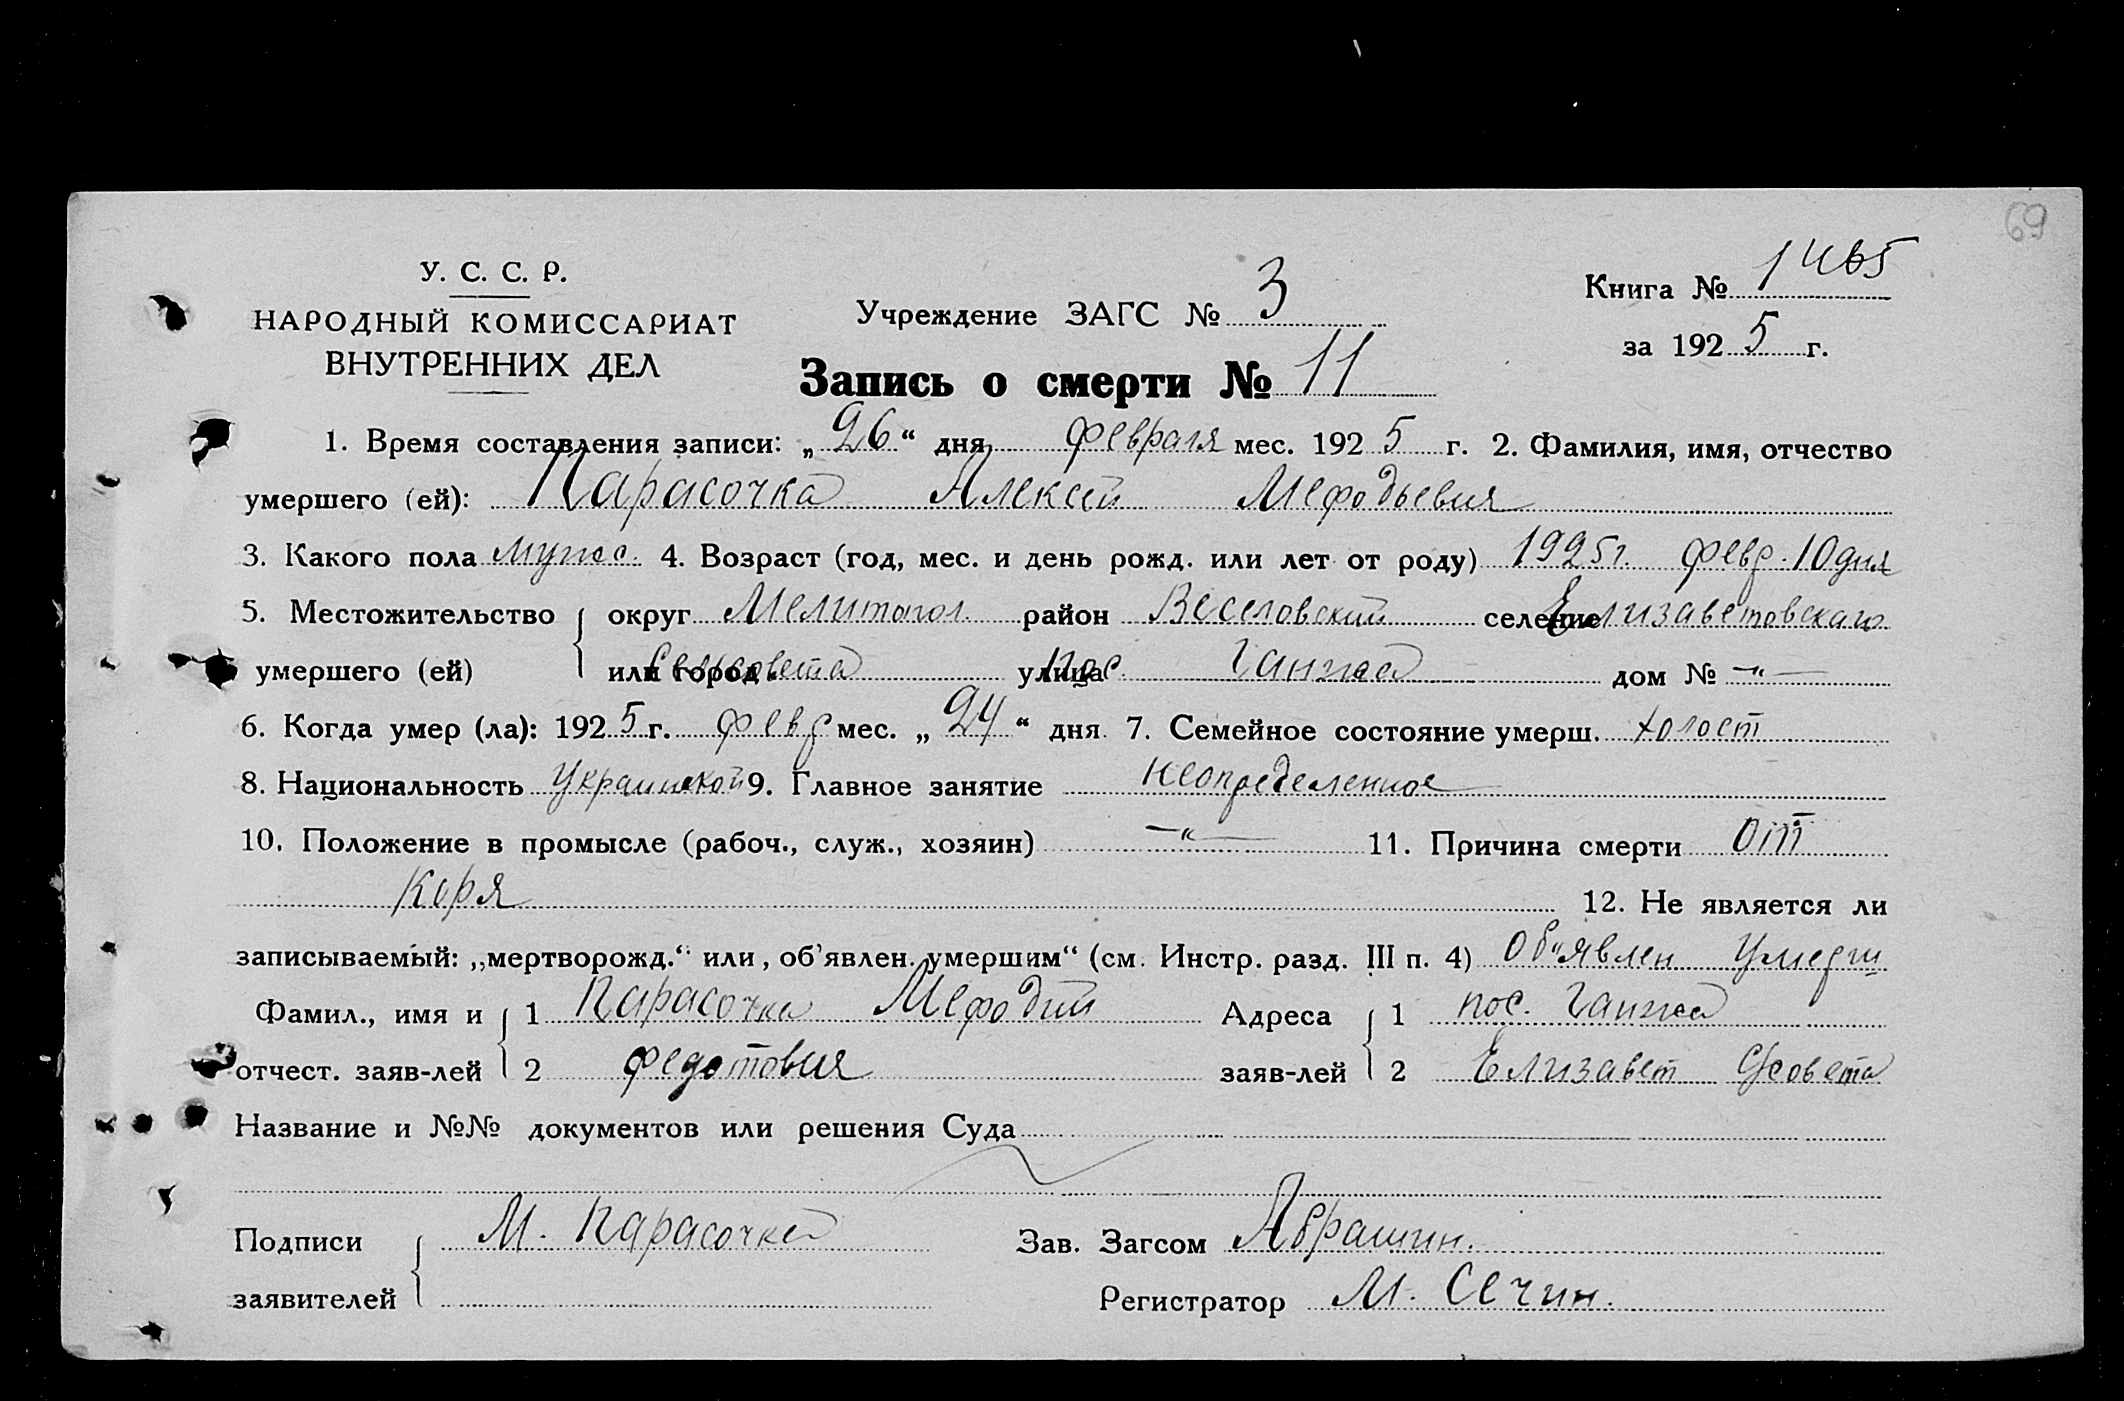 69
У. С. С. Р.
НАРОДНЫЙ КОМИССАРИАТ
ВНУТРЕННИХ ДЕЛ
Учреждение ЗАГС № 3
Книга № 1465
за 1925 г.
Запись о смерти № 11
1. Время составления записи: „26“ дня февраля мес. 1925 г. 2. Фамилия, имя, отчество
умершего (ей): Парасочка Алексей Мефодьевич
3. Какого пола мужс. 4. Возраст (год, мес. и день рожд. или лет от роду) 1925г. февр. 10 дня
5. Местожительство округ Мелитопол. район Веселовский селение Елизаветовскаго
умершего (ей) или город Сельсовета улица пос. Ганжа дом № —"—
6. Когда умер (ла): 1925 г. февр мес. „24“ дня 7. Семейное состояние умерш. холост
8. Национальность Украинской 9. Главное занятие неопределенное
10. Положение в промысле (рабоч., служ., хозяин) —"— 11. Причина смерти от
коря 12. Не является ли
записываемый: „мертворожд.“ или, об'явлен. умершим“ (см. Инстр. разд. III п. 4) Об"явлен Умерш
Фамил., имя и 1 Парасочка Мефодий Адреса 1 пос. Ганжа
отчест. заяв-лей 2 Федотович заяв-лей 2 Елизавет С/совета
Название и №№ документов или решения Суда
Подписи М. Парасочка Зав. Загсом Аврашин.
заявителей Регистратор М. Сечин.